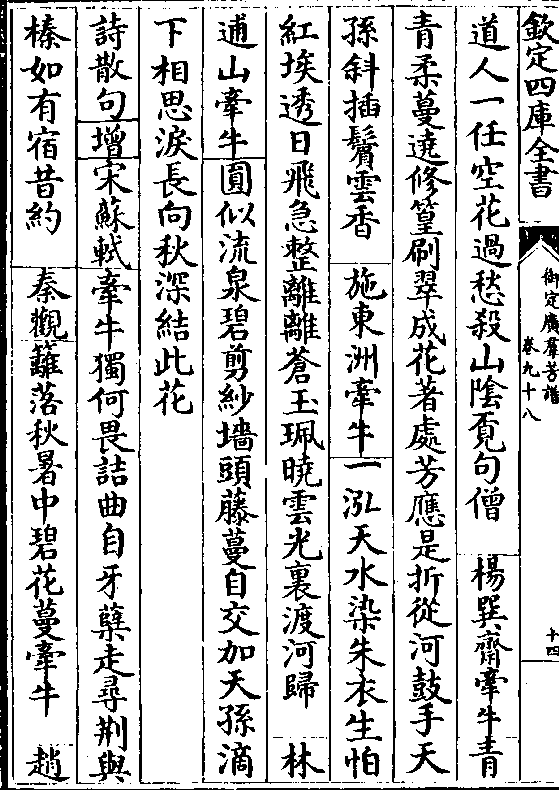 欽定四庫全書
御定廣羣芳譜
卷九十八
十四
道人一任空花過愁殺山陰覔句僧 楊巽齋牽牛青
青柔蔓遶修篁刷翠成花著處芳應是折從河鼓手天
孫斜插鬢雲香 施東洲牽牛一泓天水染朱衣生怕
紅埃透日飛急整離離蒼玉珮曉雲光裏渡河歸 林
逋山牽牛圓似流泉碧剪紗墻頭藤蔓自交加天孫滴
下相思淚長向秋深結此花
詩散句增宋蘇軾牽牛獨何畏詰曲自牙蘖走尋荆與
榛如有宿昔約 秦觀籬落秋暑中碧花蔓牽牛 趙